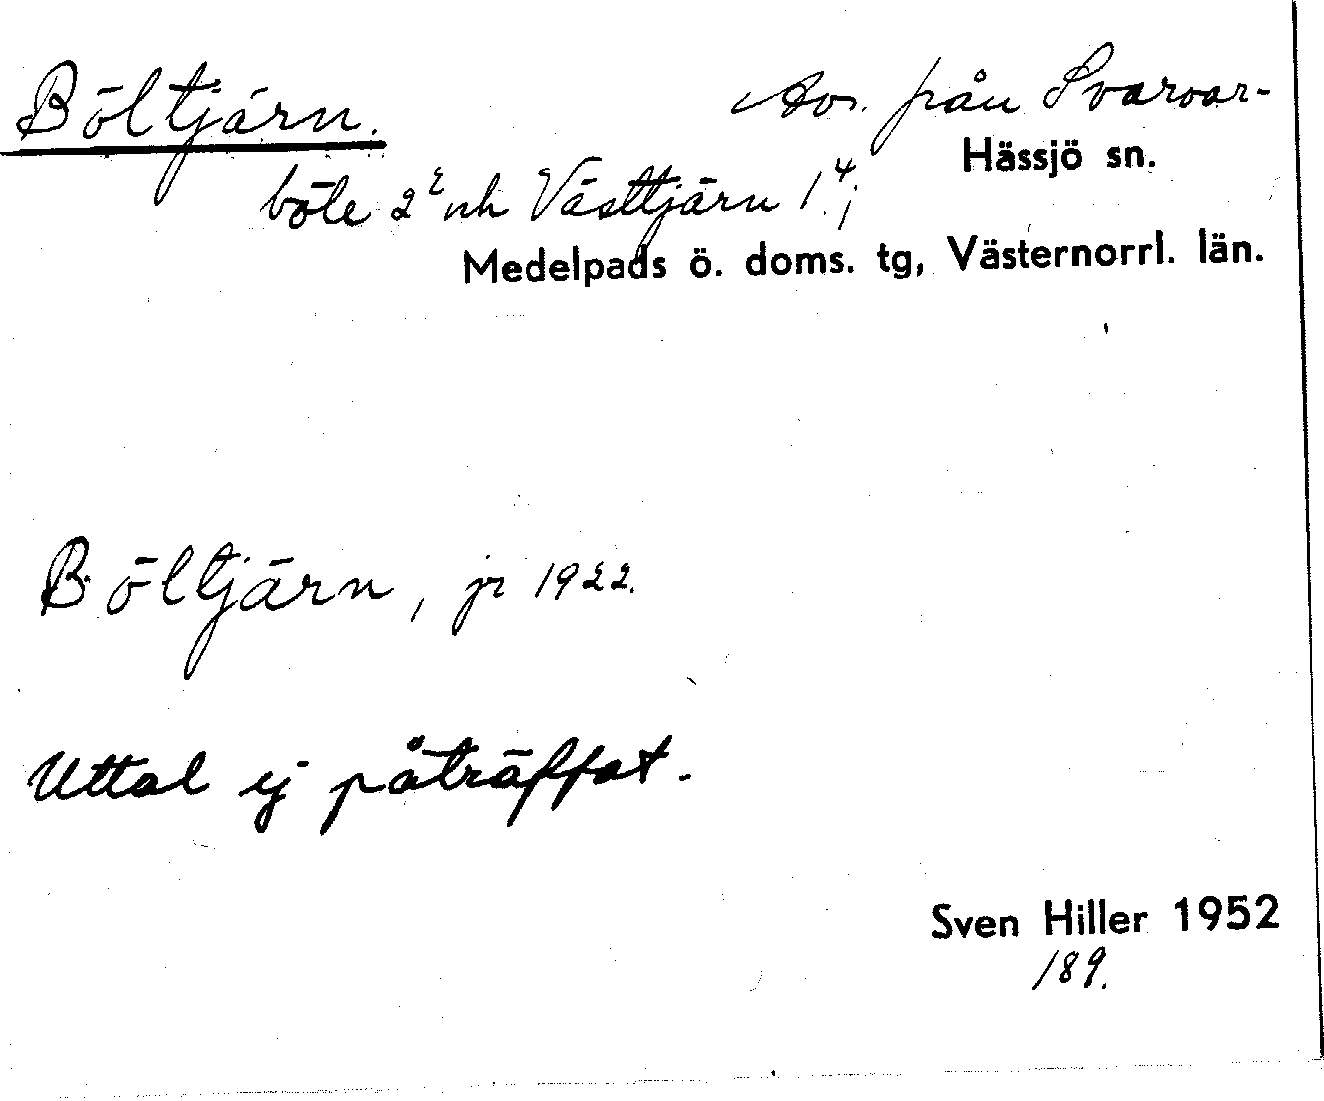 Böltjärn. Avs. från Svarvar-
Hässjö sn.
böle 2² och Västtjärn 1⁴;
Medelpads ö. doms. tg, Västernorrl. län.
Böltjärn, jr 1922.
Uttal ej påträffat.
Sven Hiller 1952
189.